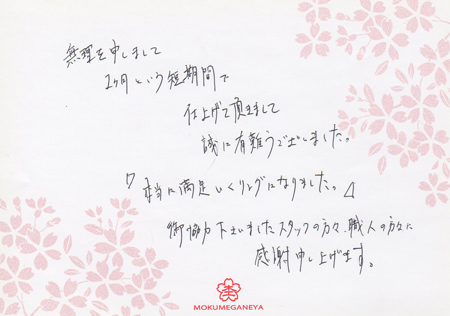 無理を申しまして
1ヶ月という短期間で
仕上げて頂きまして
誠に有難うございました。
「本当に満足いくリングになりました。」
御協力下さいましたスタッフの方々、職人の方々に
感謝申し上げます。
MOKUMEGANEYA